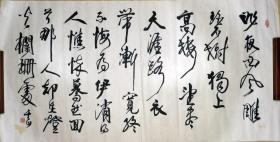 昨夜西风雕
碧樹獨上
高樓望盡
天涯路衣
帶漸寬終
不悔為伊消得
人憔悴蓦然回
首那人卻在燈
火欄珊處